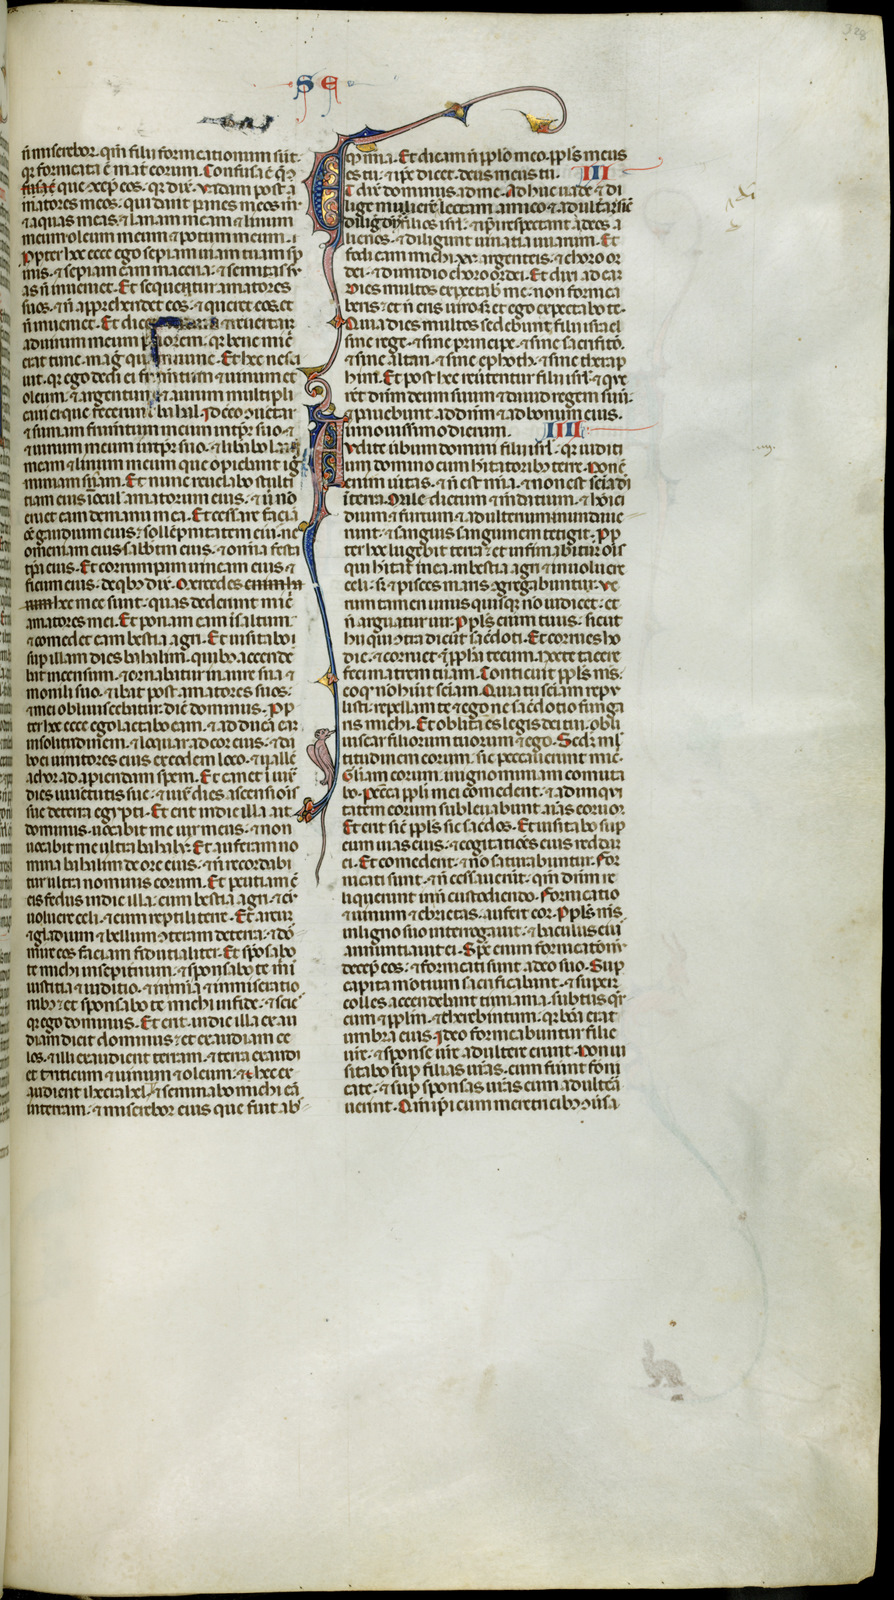 328
SE
ñ miserebor. qm̃ filii fornicationum sũt.
qr fornicata ẽ mat̃ eorum. Confusa ẽ q̃
que ↄcep̃ eos. qr dix̃. vadam post a
matores meos. qui dant panes meos m̃
⁊ aquas meas. ⁊ lanam meam ⁊ linum
meum. oleum meum ⁊ potum meum.
Propter hec ecce ego sepiam uiam tuam sp̃
nis. ⁊ sepiam eam maceria. ⁊ semitas s
as ñ inueniet. Et sequetur amatores
suos. ⁊ ñ apprehendet eos. ⁊ queret eos. et
ñ inueniet. Et dicet ⁊ reuertar
ad uirum meum priorem. qr bene mic̃
erat tunc. mag̃ quam nunc. Et hec nesci
uit. qr ego dedi ei frumentum ⁊ uinum et
oleum. ⁊ argentum ⁊ aurum multipli
caui ei que fecerunt bahal. Ideo ↄuertar
⁊ sumam frumentum meum in tp̃r suo. ⁊
⁊ uinum meum in tp̃r suo. ⁊ libabo la
meam ⁊ linum meum que opiebant ig̃
miniam suam. Et nunc reuelabo stulti
tiam eius in ocul̃ amatorum eius. ⁊ uir nõ
eruet eam de manu mea. Et cessare facia
õe gaudium eius. sollẽpnitatem eius. ne
omeniam eius sabb̃m eius. ⁊ omnia festa
tp̃a eius. Et corrumpam uineam eius ⁊
ficum eius. de qb dix̃. Mercedes
hee mee sunt. quas dederunt mic̃
amatores mei. Et ponam eam in saltum
⁊ comedet eam bestia agri. Et uisitabo
sup illam dies bahalim. quib accende
bat incensum. ⁊ ornabatur in aure sua ⁊
monili suo. ⁊ ibat post amatores suos.
⁊ mei obliuiscebatur. dic̃ dominus. Pp
ter hec ecce ego lactabo eam. ⁊ ad ducã eã
in solitudinem. ⁊ loquar ad cor eius. ⁊ da
bo ei uinitores eius ex eodem loco. ⁊ uallẽ
achor ad apiendam spem. Et canet i iux̃
dies iuuentutis sue. ⁊ iux̃ dies ascensiõis
sue de terra egypti. Et erit in die illa ait
dominus. uocabit me uir meus. ⁊ non
uocabit me ultra bahalỹ. Et auferam no
mina bahalim de ore eius. ⁊ ñ recordabi
tur ultra nominis eorum. Et peutiam c̃
eis fedus in die illa. cum bestia agri. ⁊ cũ
uolucre celi. ⁊ cum reptili terre. Et arcum
⁊ gladium ⁊ bellum ↄteram de terra. ⁊ dor
mire eos faciam fidutialiter. Et spõsabo
te michi in sepiternum. ⁊ sponsabo te mi
iustitia ⁊ iuditio. ⁊ in mĩa ⁊ in miseratio
nib. et sponsabo te michi in fide. ⁊ scie
qr ego dominus. Et erit. in die illa exau
diam dicit dominus. et exaudiam ce
los. ⁊ illi exaudient terram. ⁊ terra exaudi
et triticum ⁊ uinum ⁊ oleum. ⁊ hec ex
audient ihezrahel. ⁊ seminabo michi eã
in terram. ⁊ miserebor eius que fuit ab
sq̃ mĩa. Et dicam ñ pplo meo. ppls meus
es tu. ⁊ ipse dicet. deus meus tu. III
Et dix̃ dominus ad me. Adhuc uade ⁊ di
lige mulierẽ lectam amico ⁊ adulteram. sic̃
diligit dñs filios isrl. ⁊ ipi respectant ad eos a
lienos. ⁊ diligunt uinatia uuarum. Et
fodi eam michi xv argenteis. ⁊ choro or
dei. ⁊ dimidio choro ordei. Et dixi ad eam
Dies multos expectab me. non fornica
beris. et ñ eris uiro. s et ego expectabo te.
Quia dies multos sedebunt filii israel
sine rege. ⁊ sine principe. ⁊ sine sacrifitõ.
⁊ sine altari. ⁊ sine ephoth. ⁊ sine therap
him. Et post hec reũtentur filii isrl. ⁊ que
rẽt dñm deum suum ⁊ dauid regem suũ.
⁊ pauebunt ad dñm ⁊ ad bonum eius.
in nouissimo dierum. IIII
Audite ũbum domini filii isrl. qr iuditi
um domino cum hitatorib terre. Non ẽ
enim ueritas. ⁊ ñ est mĩa. ⁊ non est scĩa dĩ
in terra. Maledictum ⁊ m̃ditium. ⁊ homici
dium ⁊ furtum ⁊ adulterium inundaue
runt. ⁊ sanguis sanguinem tetigit. Pp
ter hec lugebit terra. et infirmabitur õis
qui hitat in ea. in bestia agri ⁊ in uolucre
celi. s. ⁊ pisces maris ↄgregabuntur. Ve
rum tamen unus quisque nõ iudicet. et
ñ arguatur uir. Ppls enim tuus. sicut
hii qui ↄtradicũt sacẽdoti. Et corrues ho
die. ⁊ corruet ⁊ ppha tecum. nocte tacere
feci matrem tuam. Conticuit ppls m̃s.
eo qr nõ huit sciam. Quia tu sciam repu
listi. repellam te ⁊ ego ne sacẽdotio funga
ris michi. Et oblita es legis dei tui. obli
uiscar filiorum tuorum ⁊ ego. Sedm ml
titudinem eorum. sic peccauerunt mic.
Gl̃iam eorum. in ignominiam comuta
bo. Pccã ppli mei comedent. ⁊ ad iniqui
tatem eorum subleuabunt aias eoruor
Et erit sic ppls sic sacẽdos. Et uisitabo sup
eum uias eius. ⁊ cogitatiões eius reddam
ei. Et comedent. ⁊ nõ saturabuntur. For
nicati sunt. ⁊ ñ cessauerũt. qm̃ dñm re
liquerunt in ñ custodiendo. Fornicatio
⁊ uinum ⁊ ebrietas. aufert cor. Ppls m̃s
in ligno suo interrogauit. ⁊ baculus eius
annuntiauit ei. Spc enim fornicationum
decep̃ eos. ⁊ fornicati sunt a deo suo. Sup
capita motium sacrificabant. ⁊ super
colles accendebant timiama. subtus qr
cum ⁊ ppl̃m. ⁊ therebintum. qr bona erat
umbra eius. Ideo fornicabuntur filie
ure. ⁊ sponse ure adultere erunt. Non ui
sitabo sup filias uras. cum fuint forni
cate. ⁊ sup sponsas uras cum adultera
uerint. Qm̃ ipi cum meretricib ↄuersa